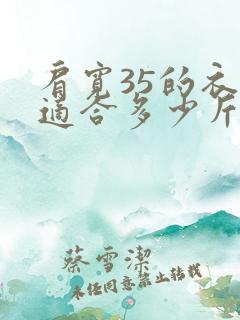 肩寬35的衣
適合多少斤
蔡雪潔
未经同意禁止转载